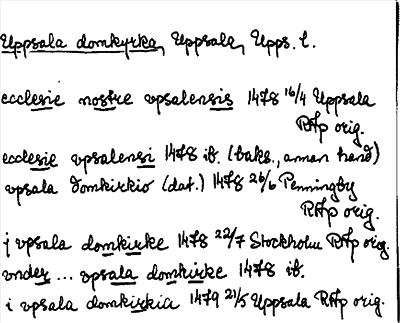 Uppsala domkyrka, Uppsala, Upps. l.
ecclesie nostre vpsalensis 1478 16/4 Uppsala
RAp orig.
ecclesie vpsalensi 1478 ib. (baks., annan hand)
vpsala domkirkio (dat.) 1478 26/6 Penningby
RAp orig.
j vpsala domkirke 1478 22/7 Stockholm RAp orig.
vnder ... vpsala domkirke 1478 ib.
i vpsala domkirkia 1479 21/5 Uppsala RAp orig.